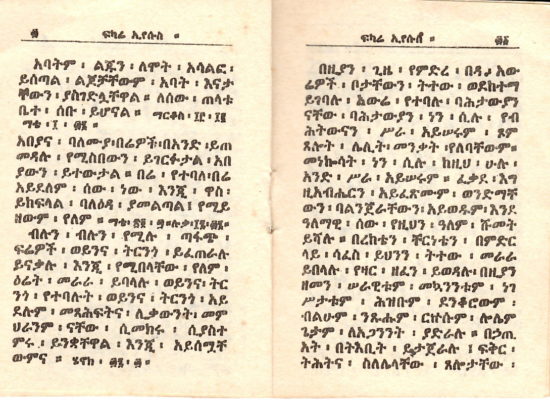 ፍካሬ ኢየሱስ ።
አባትም ፡ ልጁን ፡ ለሞት ፡ አሳልፎ ፡
ይሰጣል ፡ ልጆቻቸውም ፡ አባት ፡ እናታ
ቸውን ፡ ያስገድሏቸዋል ። ለሰው ፡ ጠላቱ
ቤተ ፡ ሰቡ ፡ ይሆናል ። ማርቆስ ፡ ፲፫ ፡ ፲፪
ማቴ ፡ ፲ ፡
አበያና ፡ ባለሙያ ፡ በሬዎች ፡ በአንድ ፡ ይጠ
መዳሉ ፡ የሚስበውን ፡ ይገርፉታል ፡ አበ
ያውን ፡ ይተውታል ። በሬ ፡ የተባለ ፡ በሬ
አይደለም ፡ ሰው ፡ ነው ፡ እንጂ ፡ ዋስ ፡
ይከፍላል ፡ ባለዕዳ ፡ ያመልጣል ፤ የሚይ
ዘውም ፡ የለም ።
ብሉን ፡ ብሉን ፡ የሚሉ ፡ ጣፋጭ ፡
ፍሬዎች ፡ ወይንና ፡ ትርንጎ ፡ ይፈጠራሉ
ይናቃሉ ፡ እንጂ ፡ የሚበላቸው ፡ የለም ፡
ዕሬት ፡ መራራ ፡ ይባላሉ ፡ ወይንና ፡ ትር
ንጎ ፡ የተባሉት ፡ ወይንና ፡ ትርንጎ ፡ አይ
ደሉም ፡ መጻሕፍትና ፡ ሊቃውንት ፡ መም
ህራንም ፡ ናቸው ፡ ሲመክሩ ፡ ሲያስተ
ምሩ ፡ ይንቋቸዋል ፡ እንጂ ፡ አይሰሟቸ
ውምና ። ሄኖክ ፡
ፍካሬ ኢየሱስ ።
በዚያን ፡ ጊዜ ፡ የምድረ ፡ በዳ ፡ አው
ሬዎች ፡ ቦታቸውን ፡ ትተው ፡ ወደከተማ
ይገባሉ ፡ አውሬ ፡ የተባሉ ፡ ባሕታውያን
ናቸው ፡ ባሕታውያን ፡ ነን ፡ ሲሉ ፡ የብ
ሕትውናን ፡ ሥራ ፡ አይሠሩም ፡ ጾም
ጸሎት ፡ ሌሊት ፡ መንቃት ፡ የለባቸውም ።
መነኰሳት ፡ ነን ፡ ሲሉ ፡ ከዚህ ፡ ሁሉ ፡
አንድ ፡ ሥራ ፡ አይሠሩም ። ፈቃደ ፡ እግ
ዚአብሔርን ፡ አይፈጽሙም ፡ ወንድማቸ
ውን ፡ ባልንጀራቸውን ፡ አይወዱም ፡ እንደ
ዓለማዊ ፡ ሰው ፡ የዚህን ፡ ዓለም ፡ ሹመት
ይሻሉ ። በረከቴን ፡ ቸርነቴን ፡ በምድር
ላይ ፡ ሳፈስ ፡ ይህን ፡ ትተው ፡ መራራ
ይበላሉ ፡ የዛር ፡ ዘፈን ፡ ይወዳሉ ፡ በዚያን
ዘመን ፡ ሠራዊቱም ፡ መኳንንቱም ፡ ነገ
ሥታቱም ፡ ሕዝቡም ፡ ደንቆሮውም ፡
ብልሁም ፡ ንጹሑም ፡ ርኩሱም ፡ ሎሌም
ጌታም ፡ ለአጋንንት ፡ ያድራሉ ። በኃጢ
አት ፡ በትእቢት ፡ ይታጀራሉ ፤ ፍቅር ፡
ትሕትና ፡ ስለሌላቸው ፡ ጸሎታቸው ፡